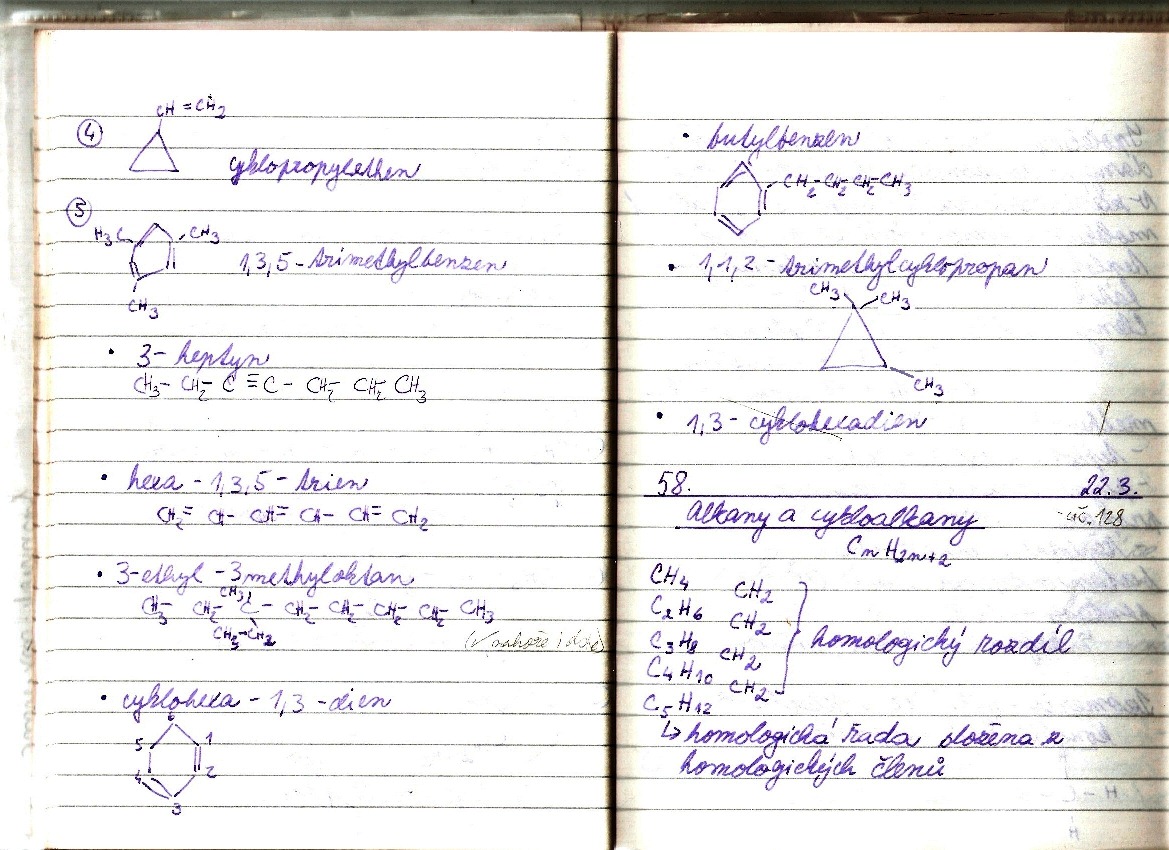 CH = CH2
④
cyklopropylethen
⑤
H3C
CH3
1,3,5 - trimethylbenzen
CH3
• 3 - heptyn
CH3 - CH2 - C ≡ C - CH2 - CH2 - CH3
• hexa - 1,3,5 - trien
CH2 = CH - CH = CH - CH = CH2
• 3-ethyl - 3methyloktan
CH3
CH3 - CH2 - C - CH2 - CH2 - CH2 - CH2 - CH3
CH2 - CH3
• cyklohexa - 1,3 - dien
6
5 1
4 2
3
• butylbenzen
CH2 - CH2 - CH2 - CH3
• 1,1,2 - trimethylcyklopropan
CH3 CH3
CH3
• 1,3 - cyklohexadien
58. 22.3.
Alkany a cykloalkany - uč. 128
CnH2n+2
CH4
CH2
C2H6
CH2
C3H8 homologický rozdíl
CH2
C4H10
CH2
C5H12
↳ homologická řada složena z
homologických členů